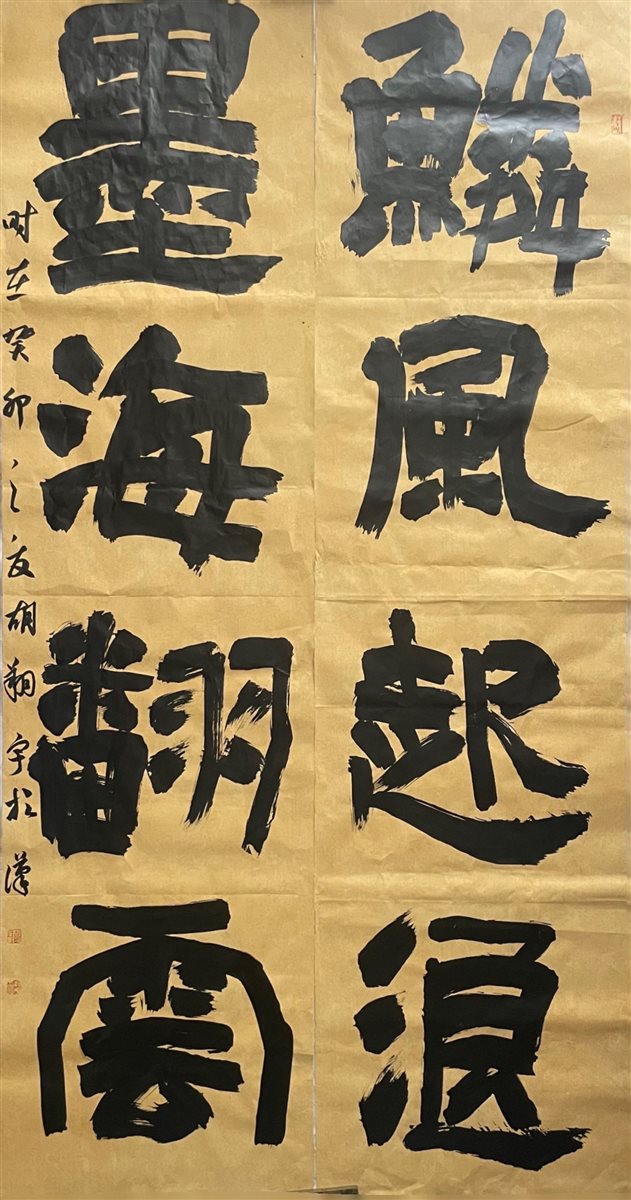 鱗風起浪
墨海翻雲
时在癸卯之夏胡翔宇於漢